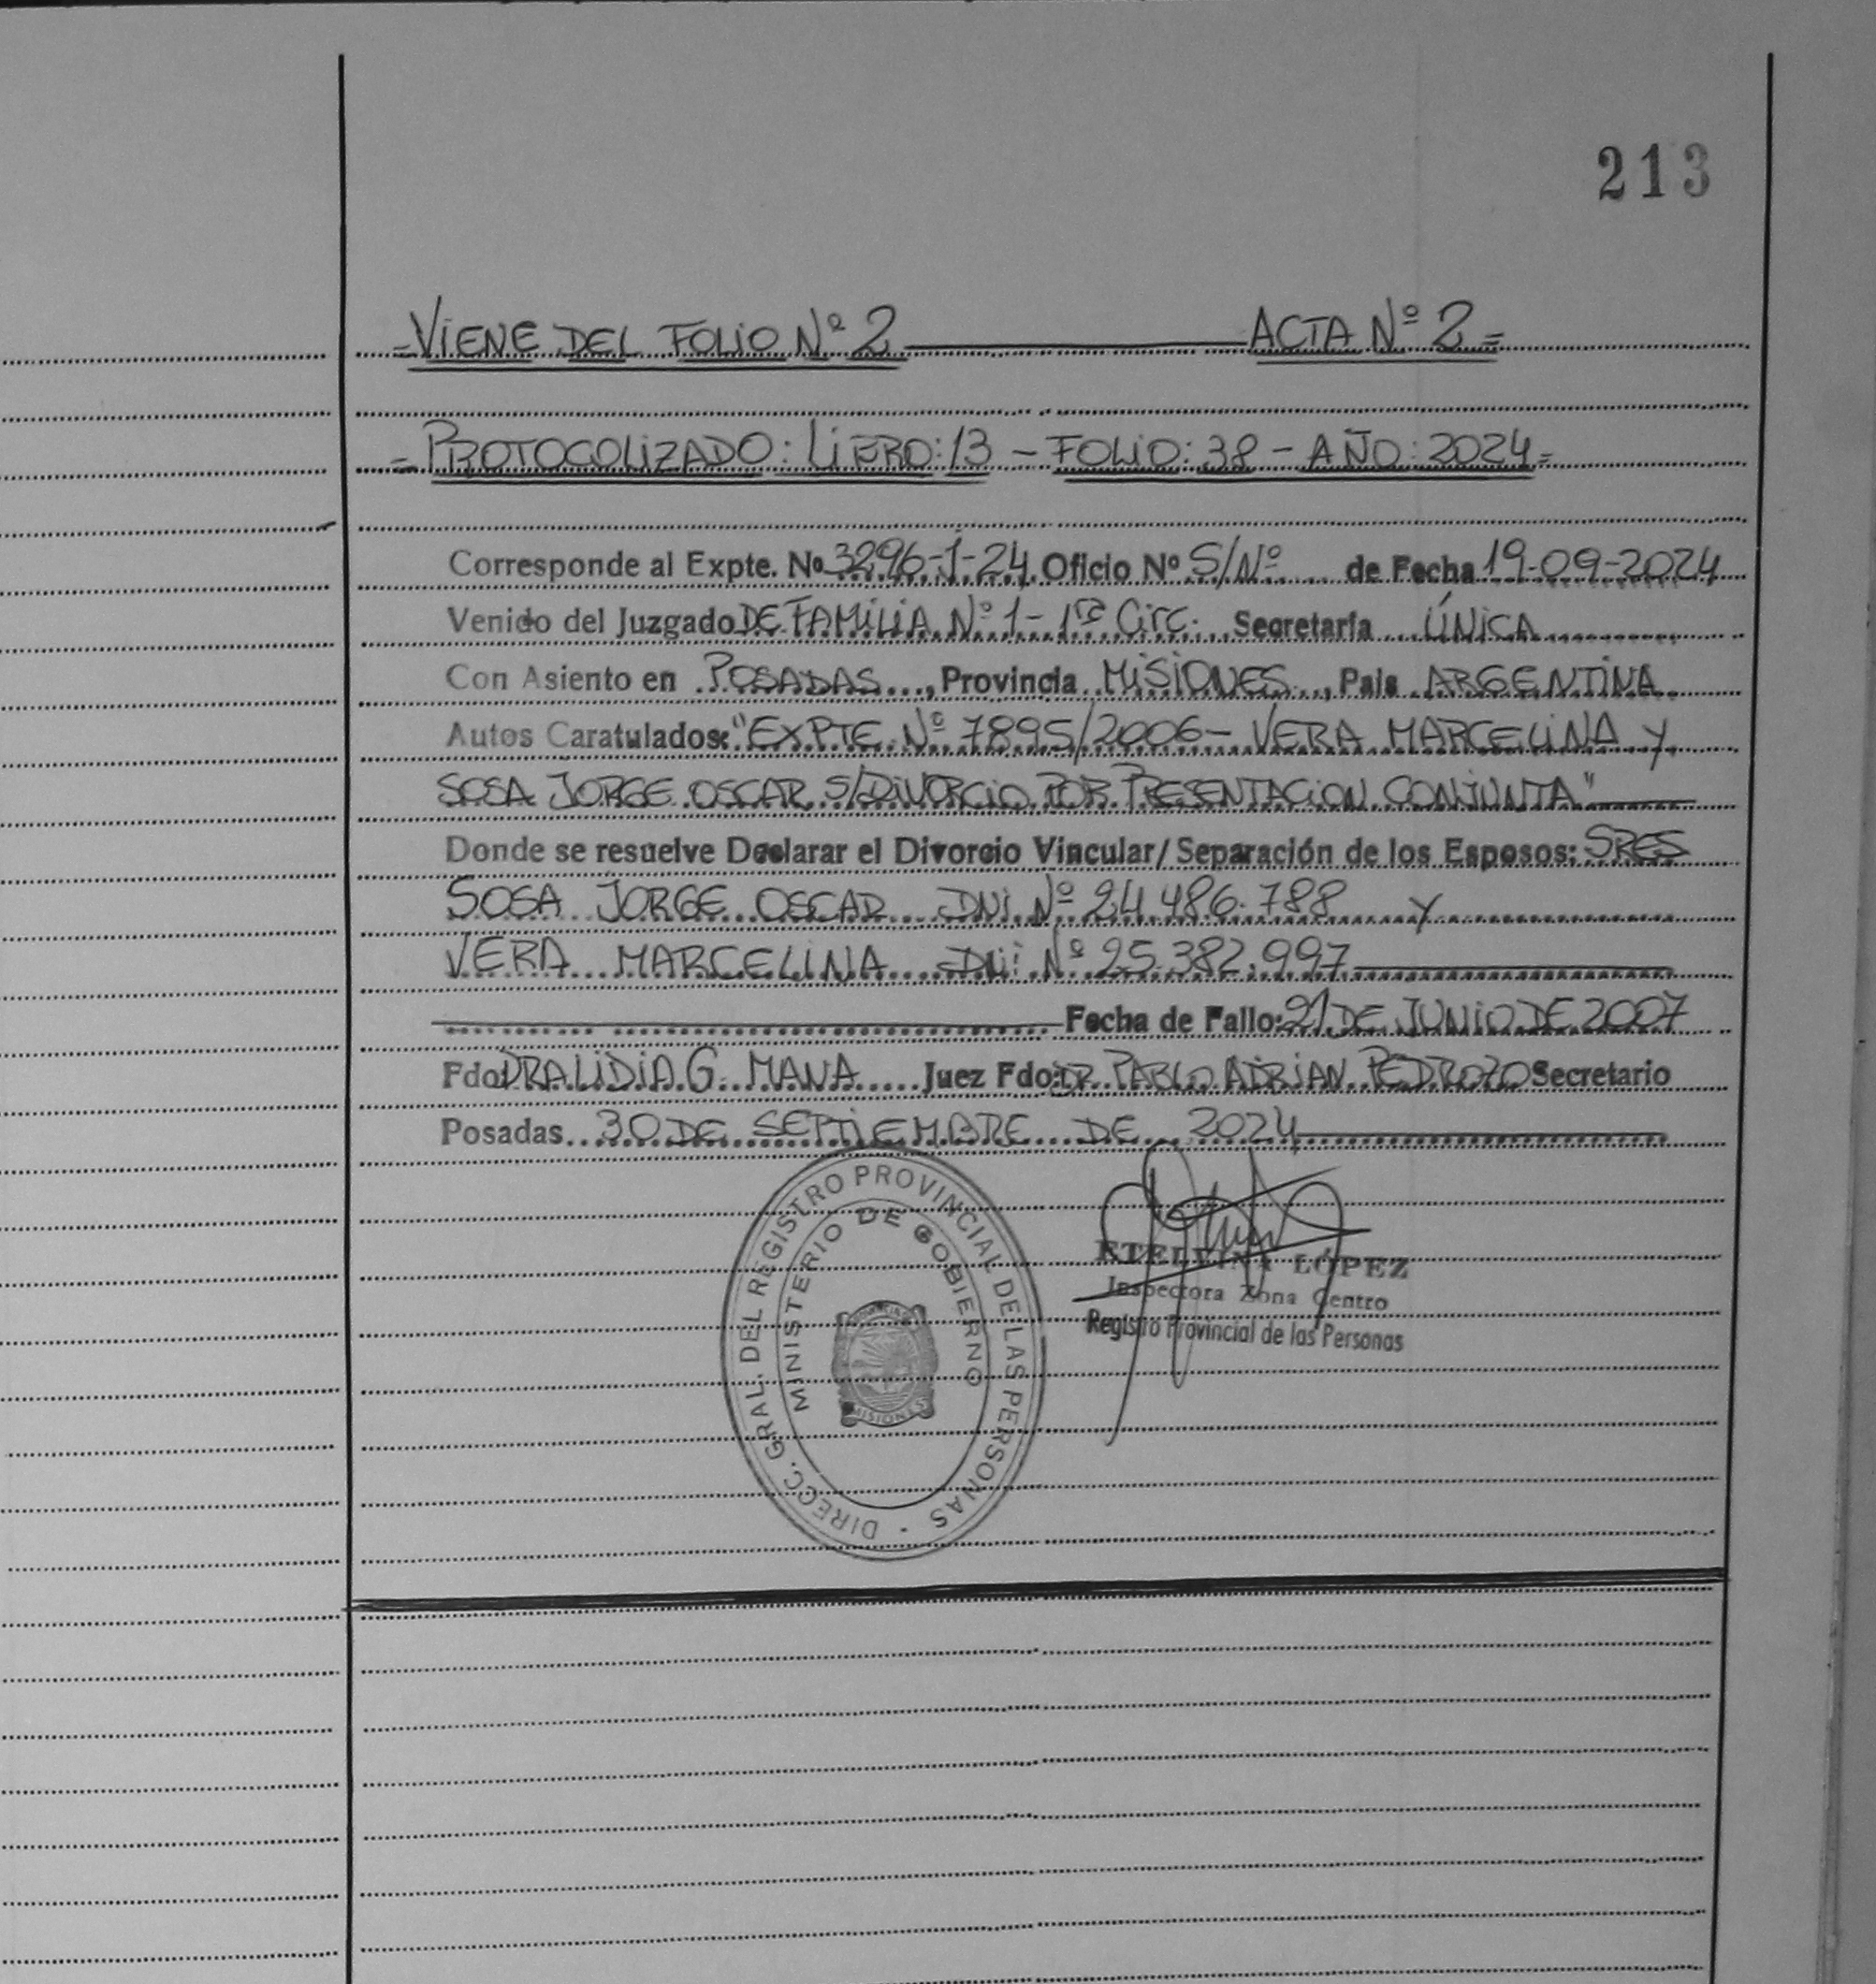 213
=VIENE DEL FOLIO Nº 2 ACTA Nº 2=
=PROTOCOLIZADO: LIBRO: 13 - FOLIO: 38 - AÑO: 2024=
Corresponde al Expte. Nº 3296-J-24 Oficio Nº S/Nº de Fecha 19-09-2024
Venido del Juzgado DE FAMILIA Nº 1 - 1ra Circ. Secretaría ÚNICA
Con Asiento en POSADAS, Provincia MISIONES, Pais ARGENTINA
Autos Caratulados: "EXPTE Nº 7895/2006- VERA MARCELINA Y
SOSA JORGE OSCAR S/DIVORCIO POR PRESENTACION CONJUNTA"
Donde se resuelve Declarar el Divorcio Vincular/Separación de los Esposos: SRES
SOSA JORGE OSCAR DNI Nº 24.486.788 Y
VERA MARCELINA DNI Nº 25.382.997
Fecha de Fallo: 21 DE JUNIO DE 2007
Fdo DRA LIDIA G. MANA Juez Fdo: DR. PABLO ADRIAN PEDROZO Secretario
Posadas 30 DE SEPTIEMBRE DE 2024
DIRECC. GRAL. DEL REGISTRO PROVINCIAL DE LAS PERSONAS
MINISTERIO DE GOBIERNO
MISIONES
ETELVINA LÓPEZ
Inspectora Zona Centro
Registro Provincial de las Personas